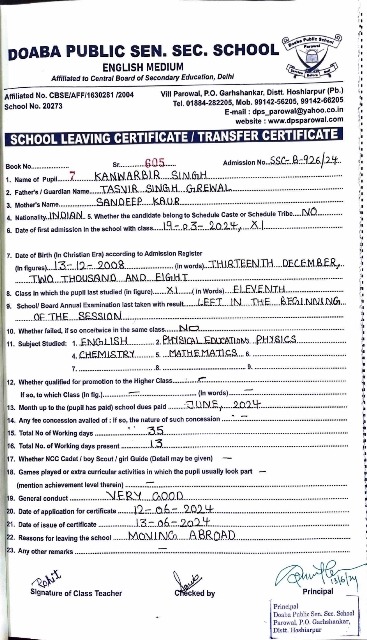 DOABA PUBLIC SEN. SEC. SCHOOL
ENGLISH MEDIUM
Affiliated to Central Board of Secondary Education, Delhi
Affiliated No. CBSE/AFF/1630281 /2004
School No. 20273
Vill Parowal, P.O. Garhshankar, Distt. Hoshiarpur (Pb.)
Tel. 01884-282205, Mob. 99142-56205, 99142-66205
E-mail : dps_parowal@yahoo.co.in
website : www.dpsparowal.com
SCHOOL LEAVING CERTIFICATE / TRANSFER CERTIFICATE
Book No. Sr. 605 Admission No. SSC-B-926/24
1. Name of Pupil KANWARBIR SINGH
2. Father's / Guardian Name TASVIR SINGH GREWAL
3. Mother's Name SANDEEP KAUR
4. Nationality INDIAN 5. Whether the candidate belong to Schedule Caste or Schedule Tribe NO
6. Date of first admission in the school with class 19-03-2024, XI
7. Date of Birth (In Christian Era) according to Admission Register
(In figures) 13-12-2008 (in words) THIRTEENTH DECEMBER,
TWO THOUSAND AND EIGHT
8. Class in which the pupil last studied (in figure) XI (In Words) ELEVENTH
9. School/ Board Annual Examination last taken with result LEFT IN THE BEGINNING
OF THE SESSION
10. Whether failed, if so once/twice in the same class NO
11. Subject Studied: 1. ENGLISH 2. PHYSICAL EDUCATION 3. PHYSICS
4. CHEMISTRY 5. MATHEMATICS 6.
7. 8. 9.
12. Whether qualified for promotion to the Higher Class
If so, to which Class (In fig.) — (In words) —
13. Month up to the (pupil has paid) school dues paid JUNE, 2024
14. Any fee concession availed of : if so, the nature of such concession —
15. Total No. of Working days 35
16. Total No. of Working days present 13
17. Whether NCC Cadet / boy Scout / girl Guide (Detail may be given) —
18. Games played or extra curricular activities in which the pupil usually took part —
(mention achievement level therein) —
19. General conduct VERY GOOD
20. Date of application for certificate 12-06-2024
21. Date of issue of certificate 13-06-2024
22. Reasons for leaving the school MOVING ABROAD
23. Any other remarks —
Rohit
13/6/24
Signature of Class Teacher
Checked by
Principal
Principal
Doaba Public Sen. Sec. School
Parowal, P.O. Garhshankar,
Distt. Hoshiarpur